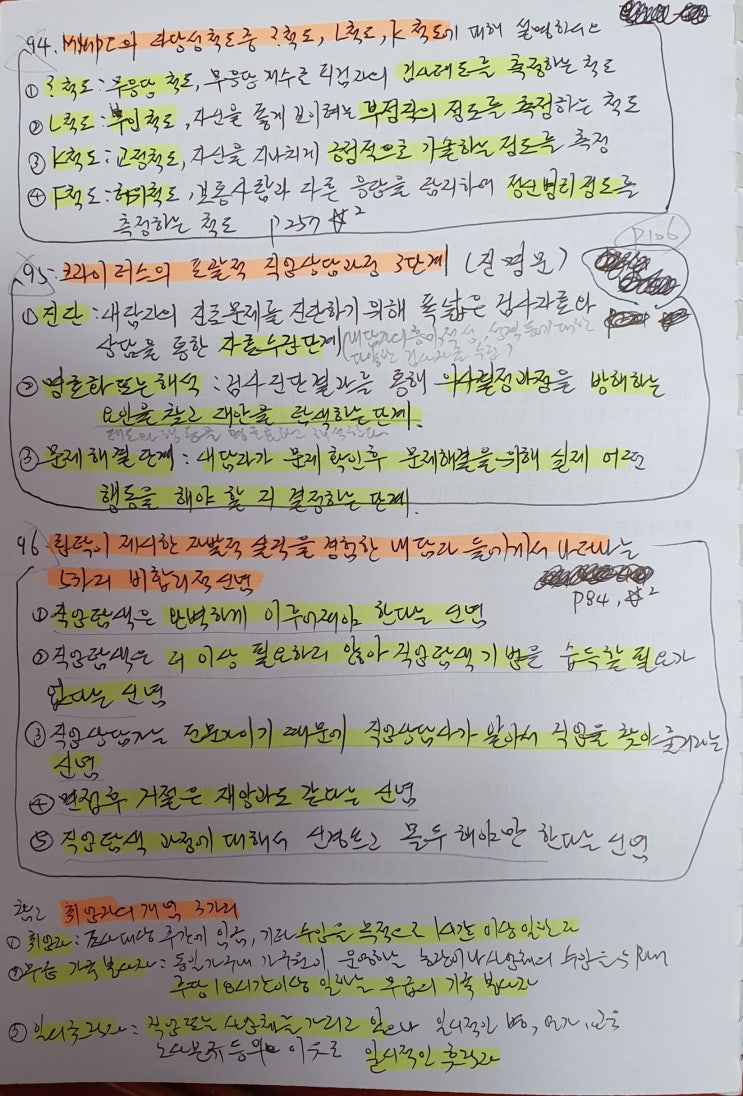 94. MMPI의 타당성척도중 ?척도, L척도, K척도에 대해 설명하시오
① ?척도 : 무응답 척도, 무응답 점수로 피검자의 검사태도를 측정하는 척도
② L척도 : 부인척도, 자신을 좋게 보이려는 부정직의 정도를 측정하는 척도
③ K척도 : 교정척도, 자신을 지나치게 긍정적으로 기술하는 정도를 측정
④ F척도 : 허위척도, 보통사람과 다른 응답을 탐지하여 정신병리정도를
측정하는 척도 P257 #2
P106
95. 크라이터스의 포괄적 직업상담과정 3단계 (진명문)
① 진단 : 내담자의 진로문제를 진단하기 위해 폭넓은 검사자료와
상담을 통한 자료수집단계 (내담자의 흥미, 적성, 성격 등에 대한
다양한 검사자료 수집)
② 명료화 또는 해석 : 검사진단결과를 통해 의사결정과정을 방해하는
요인을 찾고 대안을 탐색하는 단계.
태도와 행동을
③ 문제해결단계 : 내담자가 문제 확인후 문제해결을 위해 실제 어떤
행동을 해야 할 지 결정하는 단계.
96. 제시한 자발적 실직을 경험한 내담자 들에게서 나타나는
5가지 비합리적 신념
P84, #2
① 직업탐색은 완벽하게 이루어져야 한다는 신념
② 직업탐색은 더 이상 필요하지 않아 직업탐색기법을 습득할 필요가
없다는 신념
③ 직업상담자는 전문가이기 때문에 직업상담사가 알아서 직업을 찾아줄거라는
신념
④ 면접후 거절은 재앙과도 같다는 신념
⑤ 직업탐색 과정에 대해서 신경쓰고 몰두 해야만 한다는 신념
참고 취업자의 개념 3가지
① 취업자 : 조사대상 주간에 수입을 목적으로 1시간 이상 일한 자
무급 가족봉사자 : 동일가구내 가구원이 운영하는 농장이나 사업체의 수입을 위해
주당 18시간이상 일하는 무급의 가족 봉사자
③ 일시휴직자 : 직업 또는 사업체를 가지고 있으나 일시적인 병, 연가, 교육
노사분규 등의 이유로 일시적인 휴직자